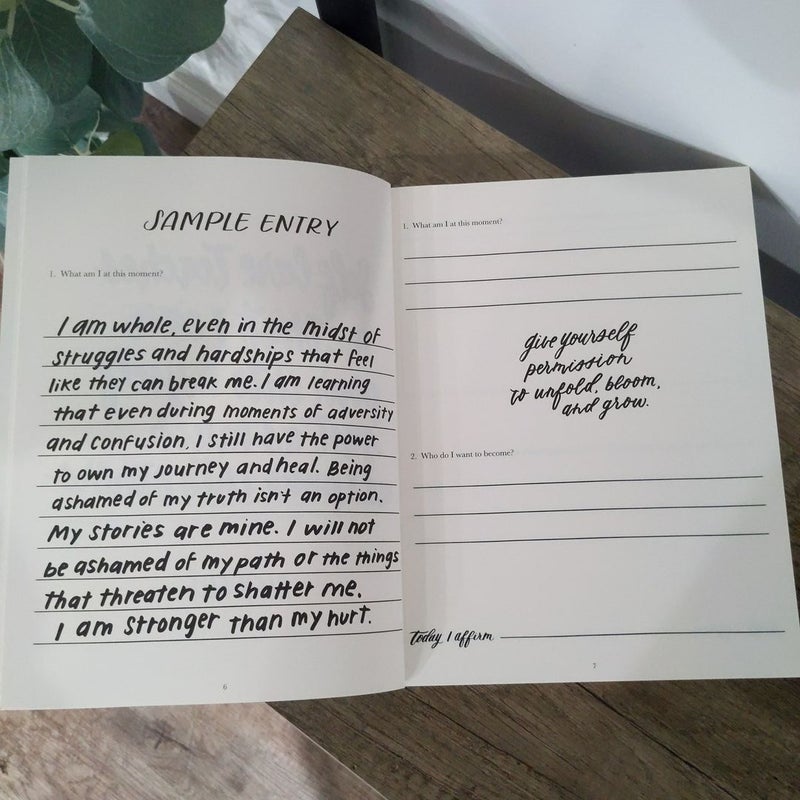 SAMPLE ENTRY
1. What am I at this moment?
I am whole, even in the midst of
struggles and hardships that feel
like they can break me. I am learning
that even during moments of adversity
and confusion, I still have the power
to own my journey and heal. Being
ashamed of my truth isn't an option.
My stories are mine. I will not
be ashamed of my path or the things
that threaten to shatter me.
I am stronger than my hurt.
6
1. What am I at this moment?
give yourself
permission
to unfold, bloom,
and grow.
2. Who do I want to become?
today, I affirm
7